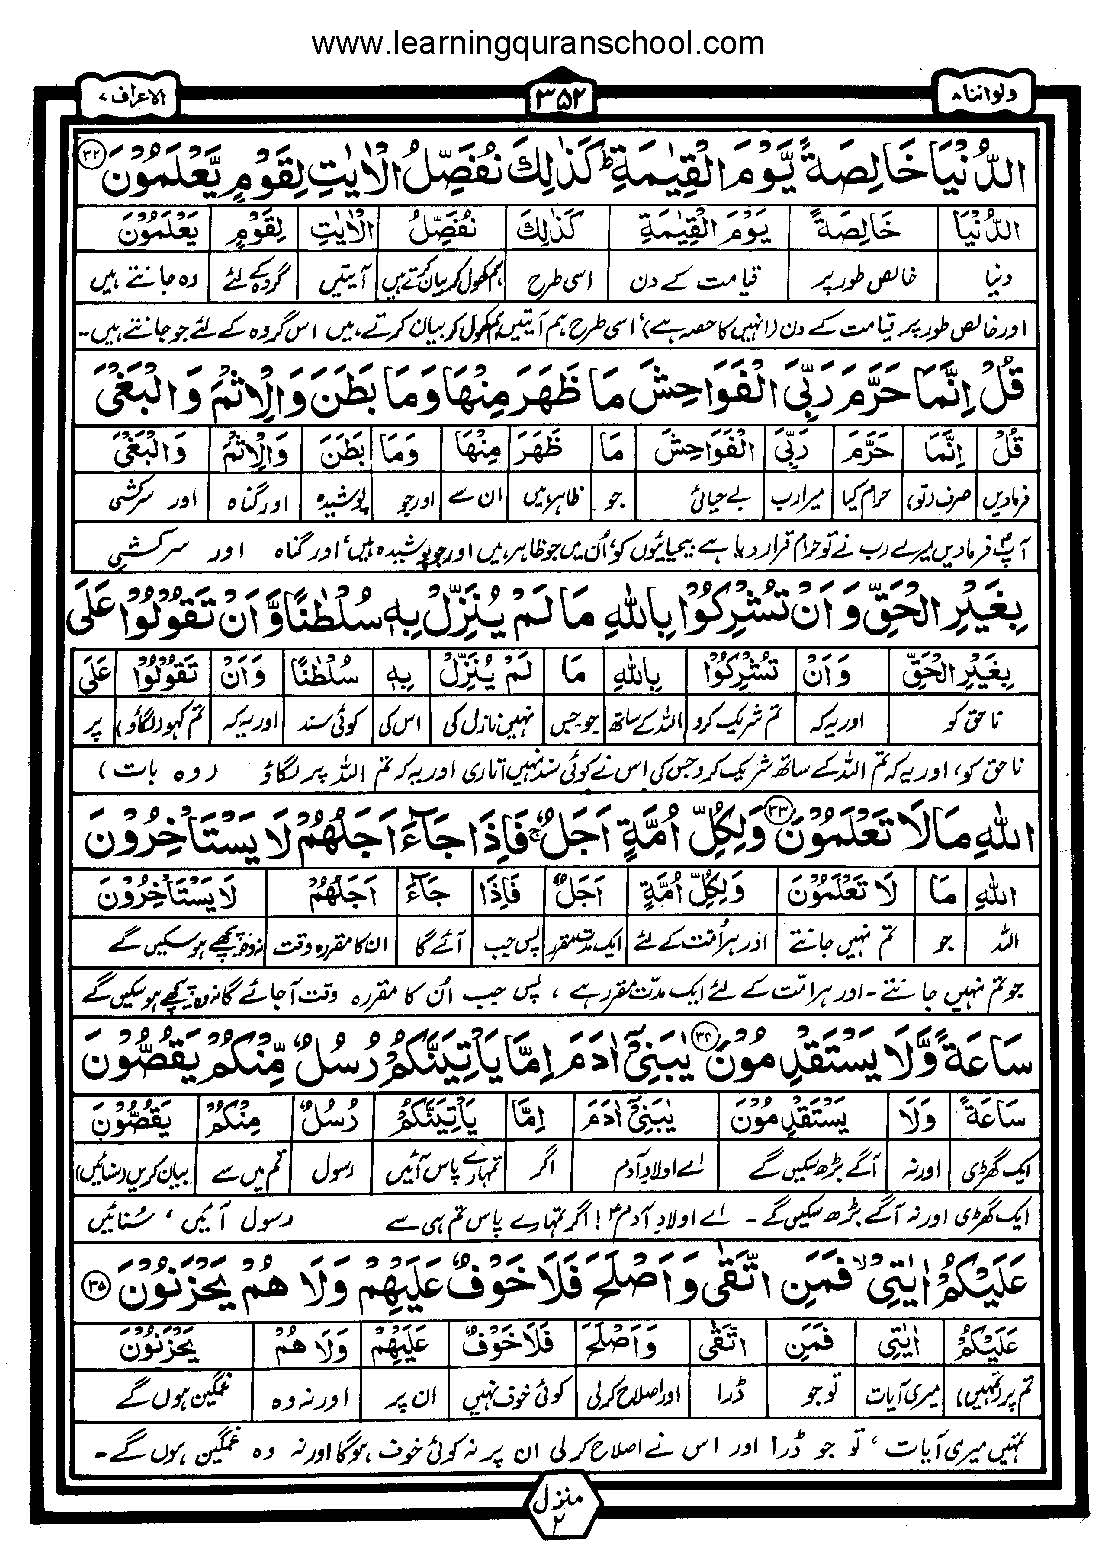 www.learningquranschool.com
ولواننا ۸
۳۵۲
الاعراف ۷
الدُّنْيَا خَالِصَةً يَّوْمَ الْقِيٰمَةِ ؕ كَذٰلِكَ نُفَصِّلُ الْاٰيٰتِ لِقَوْمٍ يَّعْلَمُوْنَ ۳۲
الدُّنْيَا خَالِصَةً يَوْمَ الْقِيٰمَةِ كَذٰلِكَ نُفَصِّلُ الْاٰيٰتِ لِقَوْمٍ يَعْلَمُوْنَ
دنیا خالص طور پر قیامت کے دن اسی طرح ہم کھول کر بیان کرتے ہیں آیتیں گروہ کے لئے وہ جانتے ہیں
اور خالص طور پر قیامت کے دن (انہیں کا حصہ ہے) اسی طرح ہم آیتیں کھول کر بیان کرتے ہیں اس گروہ کے لئے جو جانتے ہیں۔
قُلْ اِنَّمَا حَرَّمَ رَبِّيَ الْفَوَاحِشَ مَا ظَهَرَ مِنْهَا وَمَا بَطَنَ وَالْاِثْمَ وَالْبَغْيَ
قُلْ اِنَّمَا حَرَّمَ رَبِّيَ الْفَوَاحِشَ مَا ظَهَرَ مِنْهَا وَمَا بَطَنَ وَالْاِثْمَ وَالْبَغْيَ
فرمادیں صرف (تو) حرام کیا میرا رب بے حیائی جو ظاہر ہیں ان سے اور جو پوشیدہ اور گناہ اور سرکشی
آپ فرمادیں میرے رب نے تو حرام قرار دیا ہے بیحیائیوں کو اُن میں جو ظاہر ہیں اور جو پوشیدہ ہیں اور گناہ اور سرکشی
بِغَيْرِ الْحَقِّ وَاَنْ تُشْرِكُوْا بِاللّٰهِ مَا لَمْ يُنَزِّلْ بِهٖ سُلْطٰنًا وَّاَنْ تَقُوْلُوْا عَلَى
بِغَيْرِ الْحَقِّ وَاَنْ تُشْرِكُوْا بِاللّٰهِ مَا لَمْ يُنَزِّلْ بِهٖ سُلْطٰنًا وَاَنْ تَقُوْلُوْا عَلَى
ناحق کو اور یہ کہ تم شریک کرو اللہ کے ساتھ جو جس نہیں نازل کی اس کی کوئی سند اور یہ کہ تم کہو (لگاؤ) پر
ناحق کو، اور یہ کہ تم اللہ کے ساتھ شریک کرو جس کی اس نے کوئی سند نہیں اتاری اور یہ کہ تم اللہ پر لگاؤ (وہ بات)
اللّٰهِ مَا لَا تَعْلَمُوْنَ ۳۳ وَلِكُلِّ اُمَّةٍ اَجَلٌ ۚ فَاِذَا جَآءَ اَجَلُهُمْ لَا يَسْتَاْخِرُوْنَ
اللّٰهِ مَا لَا تَعْلَمُوْنَ وَلِكُلِّ اُمَّةٍ اَجَلٌ فَاِذَا جَآءَ اَجَلُهُمْ لَا يَسْتَاْخِرُوْنَ
اللہ جو تم نہیں جانتے اور ہر اُمت کے لئے ایک مدت مقرر پس جب آئے گا ان کا مقررہ وقت نہ وہ پیچھے ہوسکیں گے
جو تم نہیں جانتے۔ اور ہر امت کے لئے ایک مدت مقرر ہے، پس جب اُن کا مقررہ وقت آجائے گا نہ وہ پیچھے ہوسکیں گے
سَاعَةً وَّلَا يَسْتَقْدِمُوْنَ ۳۴ يٰبَنِيْٓ اٰدَمَ اِمَّا يَاْتِيَنَّكُمْ رُسُلٌ مِّنْكُمْ يَقُصُّوْنَ
سَاعَةً وَلَا يَسْتَقْدِمُوْنَ يٰبَنِيْٓ اٰدَمَ اِمَّا يَاْتِيَنَّكُمْ رُسُلٌ مِنْكُمْ يَقُصُّوْنَ
ایک گھڑی اور نہ آگے بڑھ سکیں گے اے اولاد آدم اگر تمہارے پاس آئیں رسول تم میں سے بیان کریں (سنائیں)
ایک گھڑی اور نہ آگے بڑھ سکیں گے۔ اے اولادِ آدمؑ! اگر تمہارے پاس تم ہی سے رسول آئیں، سُنائیں
عَلَيْكُمْ اٰيٰتِيْ ۙ فَمَنِ اتَّقٰى وَاَصْلَحَ فَلَا خَوْفٌ عَلَيْهِمْ وَلَا هُمْ يَحْزَنُوْنَ ۳۵
عَلَيْكُمْ اٰيٰتِيْ فَمَنِ اتَّقٰى وَاَصْلَحَ فَلَا خَوْفٌ عَلَيْهِمْ وَلَا هُمْ يَحْزَنُوْنَ
تم پر (تمہیں) میری آیات تو جو ڈرا اور اصلاح کرلی کوئی خوف نہیں ان پر اور نہ وہ غمگین ہوں گے
تمہیں میری آیات، تو جو ڈرا اور اس نے اصلاح کرلی ان پر نہ کوئی خوف ہوگا اور نہ وہ غمگین ہوں گے۔
منزل ۲